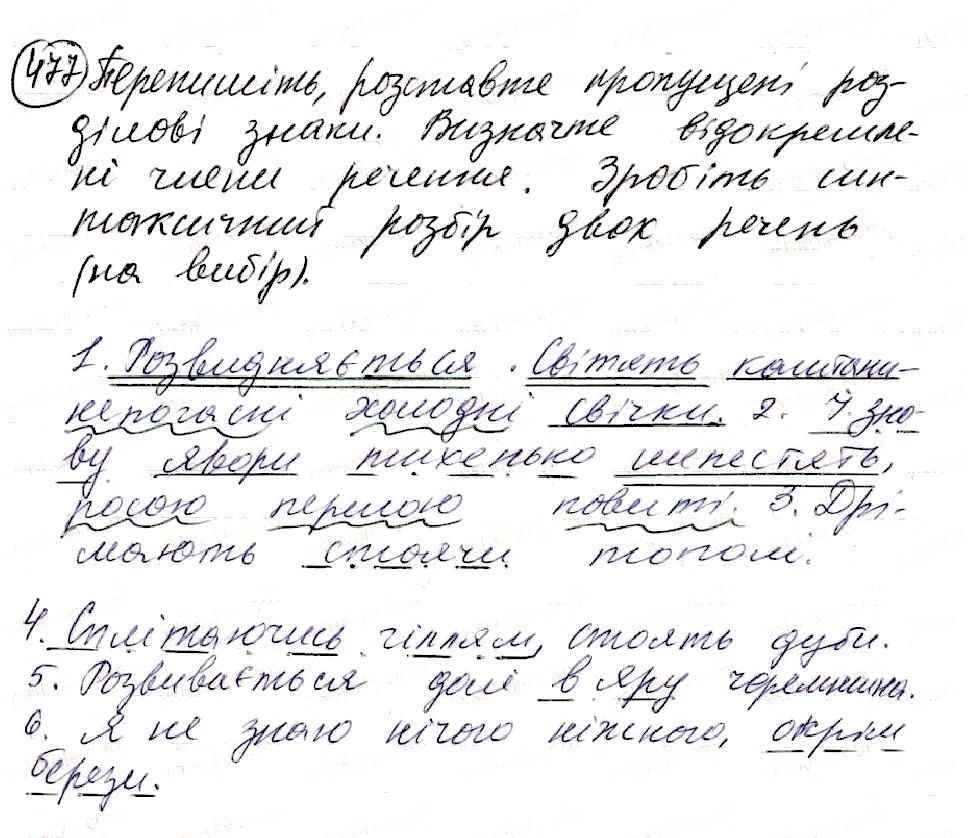 477 Перепишіть, розставте пропущені роз-
ділові знаки. Визначте відокремле-
ні члени речення. Зробіть син-
таксичний розбір двох речень
(на вибір).
1. Розвидняється. Світять каштани-
непогасні холодні свічки. 2. Й зно-
ву явори тихенько шелестять,
росою першою повиті. 3. Дрі-
мають стоячи тополі.
4. Сплітаючись гіллям, стоять дуби.
5. Розвивається долі в яру черемшина.
6. Я не знаю нічого ніжного, окрім
берези.